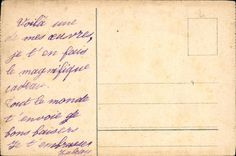 Voilà une
de mes œuvres,
je t'en fais
le magnifique
cadeau.
Tout le monde
t'envoie de
bons baisers
Je t'embrasse